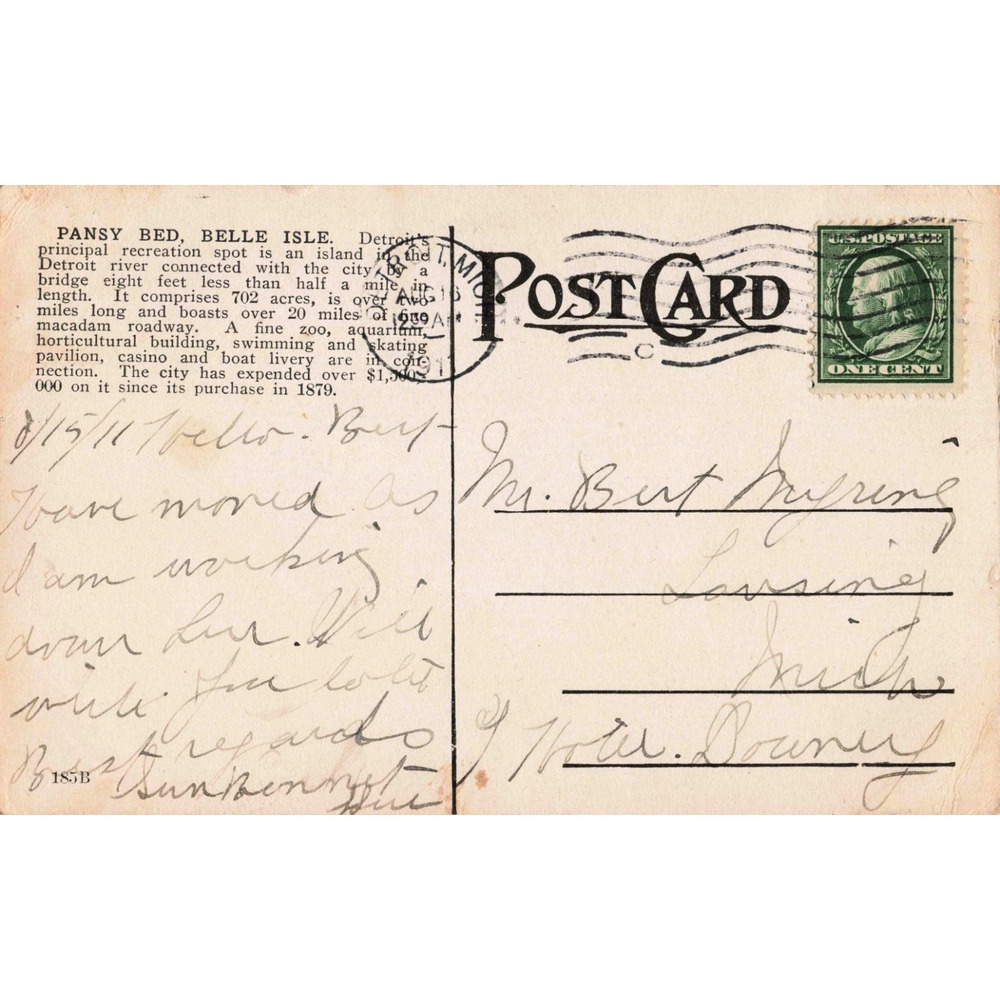 PANSY BED, BELLE ISLE. Detroit's
principal recreation spot is an island in the
Detroit river connected with the city by a
bridge eight feet less than half a mile in
length. It comprises 702 acres, is over two
miles long and boasts over 20 miles of
macadam roadway. A fine zoo, aquarium,
horticultural building, swimming and skating
pavilion, casino and boat livery are in con-
nection. The city has expended over $1,500,
000 on it since its purchase in 1879.
8/15/11 Hello. Bert
Have moved as
I am working
down here. Will
write you later
Best regards
SunBonnet
Sue
185B
DETROIT, MICH
AUG 16
1230 AM
1911
C
POST CARD
U.S. POSTAGE
ONE CENT
Mr. Bert
Lansing
Mich
Hotel. Downey